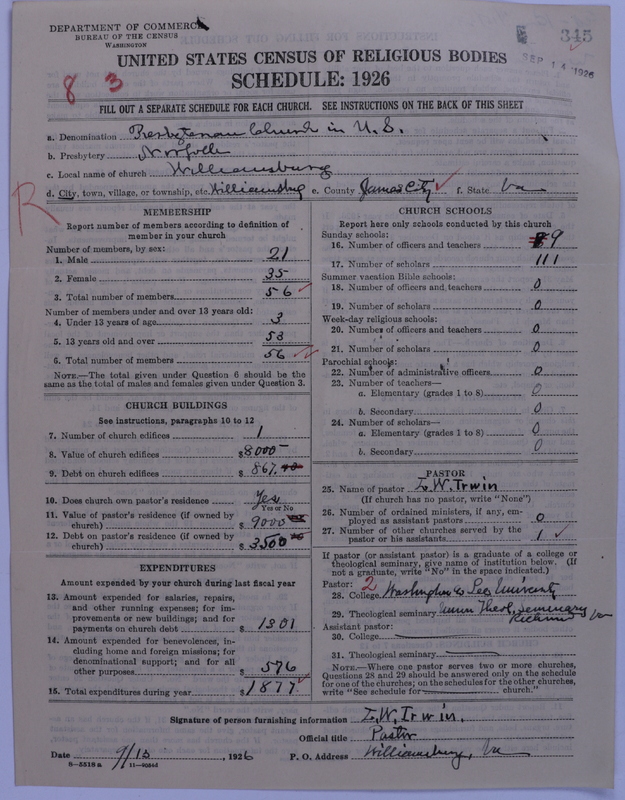 DEPARTMENT OF COMMERCE
BUREAU OF THE CENSUS
WASHINGTON
345
SEP 14 1926
UNITED STATES CENSUS OF RELIGIOUS BODIES
SCHEDULE: 1926
8 3
FILL OUT A SEPARATE SCHEDULE FOR EACH CHURCH. SEE INSTRUCTIONS ON THE BACK OF THIS SHEET
a. Denomination Presbyterian Church in U.S.
b. Presbytery Norfolk
c. Local name of church Williamsburg
d. City, town, village, or township, etc. Williamsburg e. County James City f. State Va
R
MEMBERSHIP
Report number of members according to definition of
member in your church
Number of members, by sex:
1. Male 21
2. Female 35
3. Total number of members 56
Number of members under and over 13 years old:
4. Under 13 years of age 3
5. 13 years old and over 53
6. Total number of members 56
NOTE.—The total given under Question 6 should be
same as the total of males and females given under Question 3.
CHURCH BUILDINGS
See instructions, paragraphs 10 to 12
7. Number of church edifices 1
8. Value of church edifices $8000
9. Debt on church edifices $867.40
10. Does church own pastor's residence Yes
Yes or No
11. Value of pastor's residence (if owned by
church) $9000
12. Debt on pastor's residence (if owned by
church) $3500
EXPENDITURES
Amount expended by your church during last fiscal year
13. Amount expended for salaries, repairs,
and other running expenses; for im-
provements or new buildings; and for
payments on church debt $1301
14. Amount expended for benevolences, in-
cluding home and foreign missions; for
denominational support; and for all
other purposes $576
15. Total expenditures during year $1877
CHURCH SCHOOLS
Report here only schools conducted by this church
Sunday schools:
16. Number of officers and teachers 9
17. Number of scholars 111
Summer vacation Bible schools:
18. Number of officers and teachers 0
19. Number of scholars 0
Week-day religious schools:
20. Number of officers and teachers 0
21. Number of scholars 0
Parochial schools:
22. Number of administrative officers 0
23. Number of teachers—
a. Elementary (grades 1 to 8) 0
b. Secondary 0
24. Number of scholars—
a. Elementary (grades 1 to 8) 0
b. Secondary 0
PASTOR
25. Name of pastor I. W. Irwin
(If church has no pastor, write "None")
26. Number of ordained ministers, if any, em-
ployed as assistant pastors 0
27. Number of other churches served by the
pastor or his assistants 1
If pastor (or assistant pastor) is a graduate of a college or
theological seminary, give name of institution below. (If
not a graduate, write "No" in the space indicated.)
Pastor: 2
28. College Washington & Lee University
29. Theological seminary Union Theol. Seminary
Richmond Va
Assistant pastor:
30. College
31. Theological seminary
NOTE.—Where one pastor serves two or more churches,
Questions 28 and 29 should be answered only on the schedule
for one of the churches; on the schedules for the other churches,
write "See schedule for church."
Signature of person furnishing information I. W. Irwin.
Official title Pastor
Date 9/13, 1926 P. O. Address Williamsburg, Va
8—5518a 11—9054d